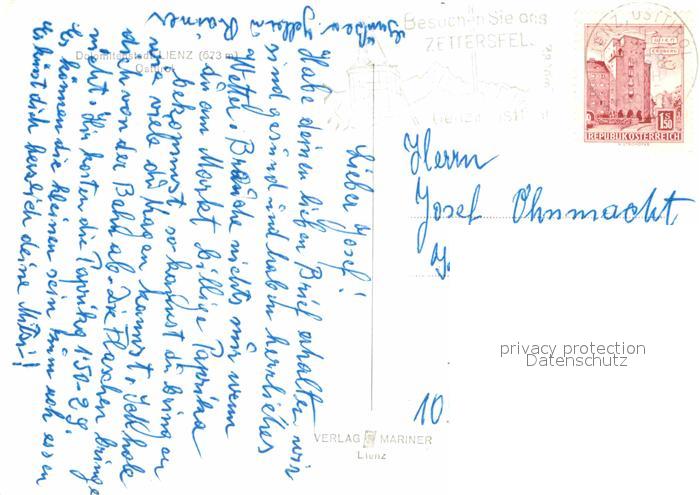 Lieber Josef!
Habe deinen lieben Brief erhalten wir
sind gesund und haben herrliches
Wetter. Brauche nichts nur wenn
du am Markt billige Paprika
bekommst so kaufst du bringen
wie viele du tragen kannst. Ich hole
dich von der Bahn ab. Die Flaschen bringe
nicht. Hir kosten die Paprika 1'50-2 S.
Es können die kleinen sein zum roh essen
Es küsst dich herzlich deine Mitzi!
Grüßen
Dolomitenstadt LIENZ (673 m)
Osttirol
Besuchen Sie das
ZETTERSFEL
LIENZ, OSTTIROL
1.50 S
REPUBLIK ÖSTERREICH
Herrn
Josef Ohnmacht
10.
privacy protection
Datenschutz
VERLAG MARINER
Lienz